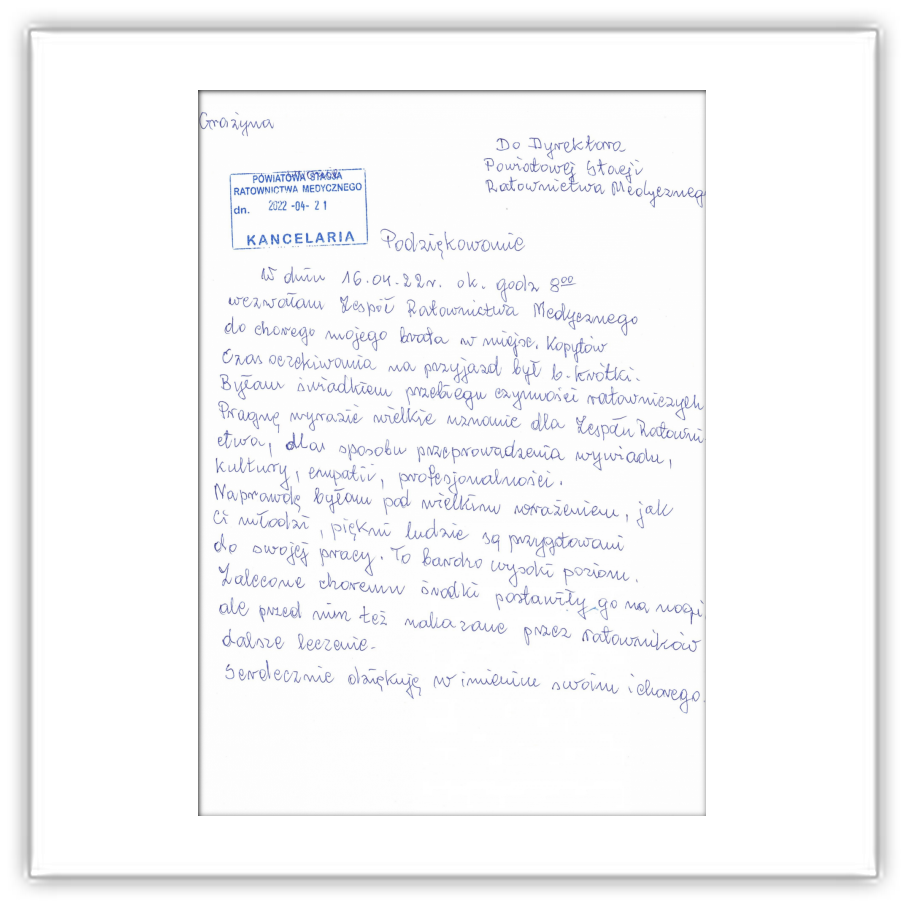 Grażyna
Do Dyrektora
Powiatowej Stacji
Ratownictwa Medyczneg
POWIATOWA STACJA
RATOWNICTWA MEDYCZNEGO
dn. 2022 -04- 21
KANCELARIA
Podziękowanie
W dniu 16.04.22r. ok. godz 8⁰⁰
wezwałam Zespół Ratownictwa Medycznego
do chorego mojego brata w miejsc. Kopytów
Czas oczekiwania na przyjazd był b. krótki.
Byłam świadkiem przebiegu czynności ratowniczych
Pragnę wyrazić wielkie uznanie dla Zespołu Ratowni
ctwa, dla sposobu przeprowadzenia wywiadu,
kultury, empatii, profesjonalności.
Naprawdę byłam pod wielkim wrażeniem, jak
Ci młodzi, piękni ludzie są przygotowani
do swojej pracy. To bardzo wysoki poziom.
Zalecone choremu środki postawiły go na nogi
ale przed nim też nakazane przez ratowników
dalsze leczenie.
Serdecznie dziękuję w imieniu swoim i chorego.